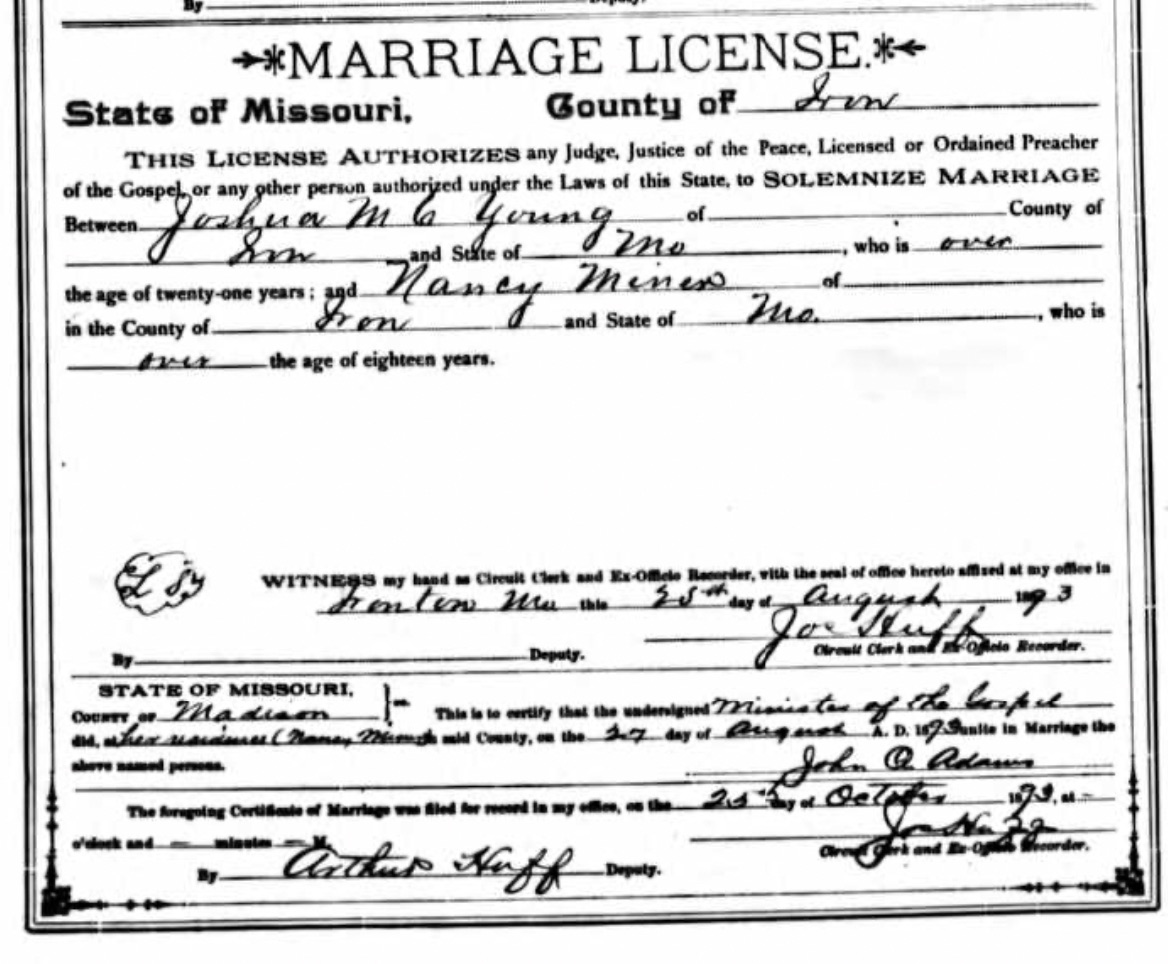 By Deputy.
MARRIAGE LICENSE.
State of Missouri, County of Iron
THIS LICENSE AUTHORIZES any Judge, Justice of the Peace, Licensed or Ordained Preacher
of the Gospel, or any other person authorized under the Laws of this State, to SOLEMNIZE MARRIAGE
Between Joshua M C Young of County of
Iron and State of Mo, who is over
the age of twenty-one years; and Nancy Miner of
in the County of Iron and State of Mo., who is
over the age of eighteen years.
L S
WITNESS my hand as Circuit Clerk and Ex-Officio Recorder, with the seal of office hereto affixed at my office in
Ironton Mo this 25th day of August 1893
Joe Huff
By Deputy. Circuit Clerk and Ex-Officio Recorder.
STATE OF MISSOURI,
COUNTY OF Madison } This is to certify that the undersigned Minister of the Gospel
did, at her residence (Nancy in said County, on the 27 day of August A. D. 1893 unite in Marriage the
above named persons.
John Q Adams
The foregoing Certificate of Marriage was filed for record in my office, on the 25th day of October 1893, at –
o'clock and — minutes — M. Joe Huff
Circuit Clerk and Ex-Officio Recorder.
By Arthur Huff Deputy.